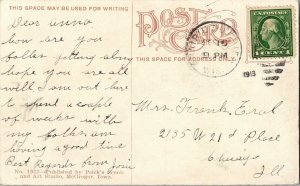 THIS SPACE MAY BE USED FOR WRITING
POST CARD
THIS SPACE FOR ADDRESS ONLY.
9 PM
WIS.
1913
1 CENT 1
Dear Anna
how are you
folks getting along
hope you are all
well I am out here
to spend a couple
of weeks with
my folks am
having a good time
Best Regards from
Mrs. Frank Eral
2135 W 21st Place
Chicago
Ill
No. 1923 Published by
and Art Studio, McGregor, Iowa.